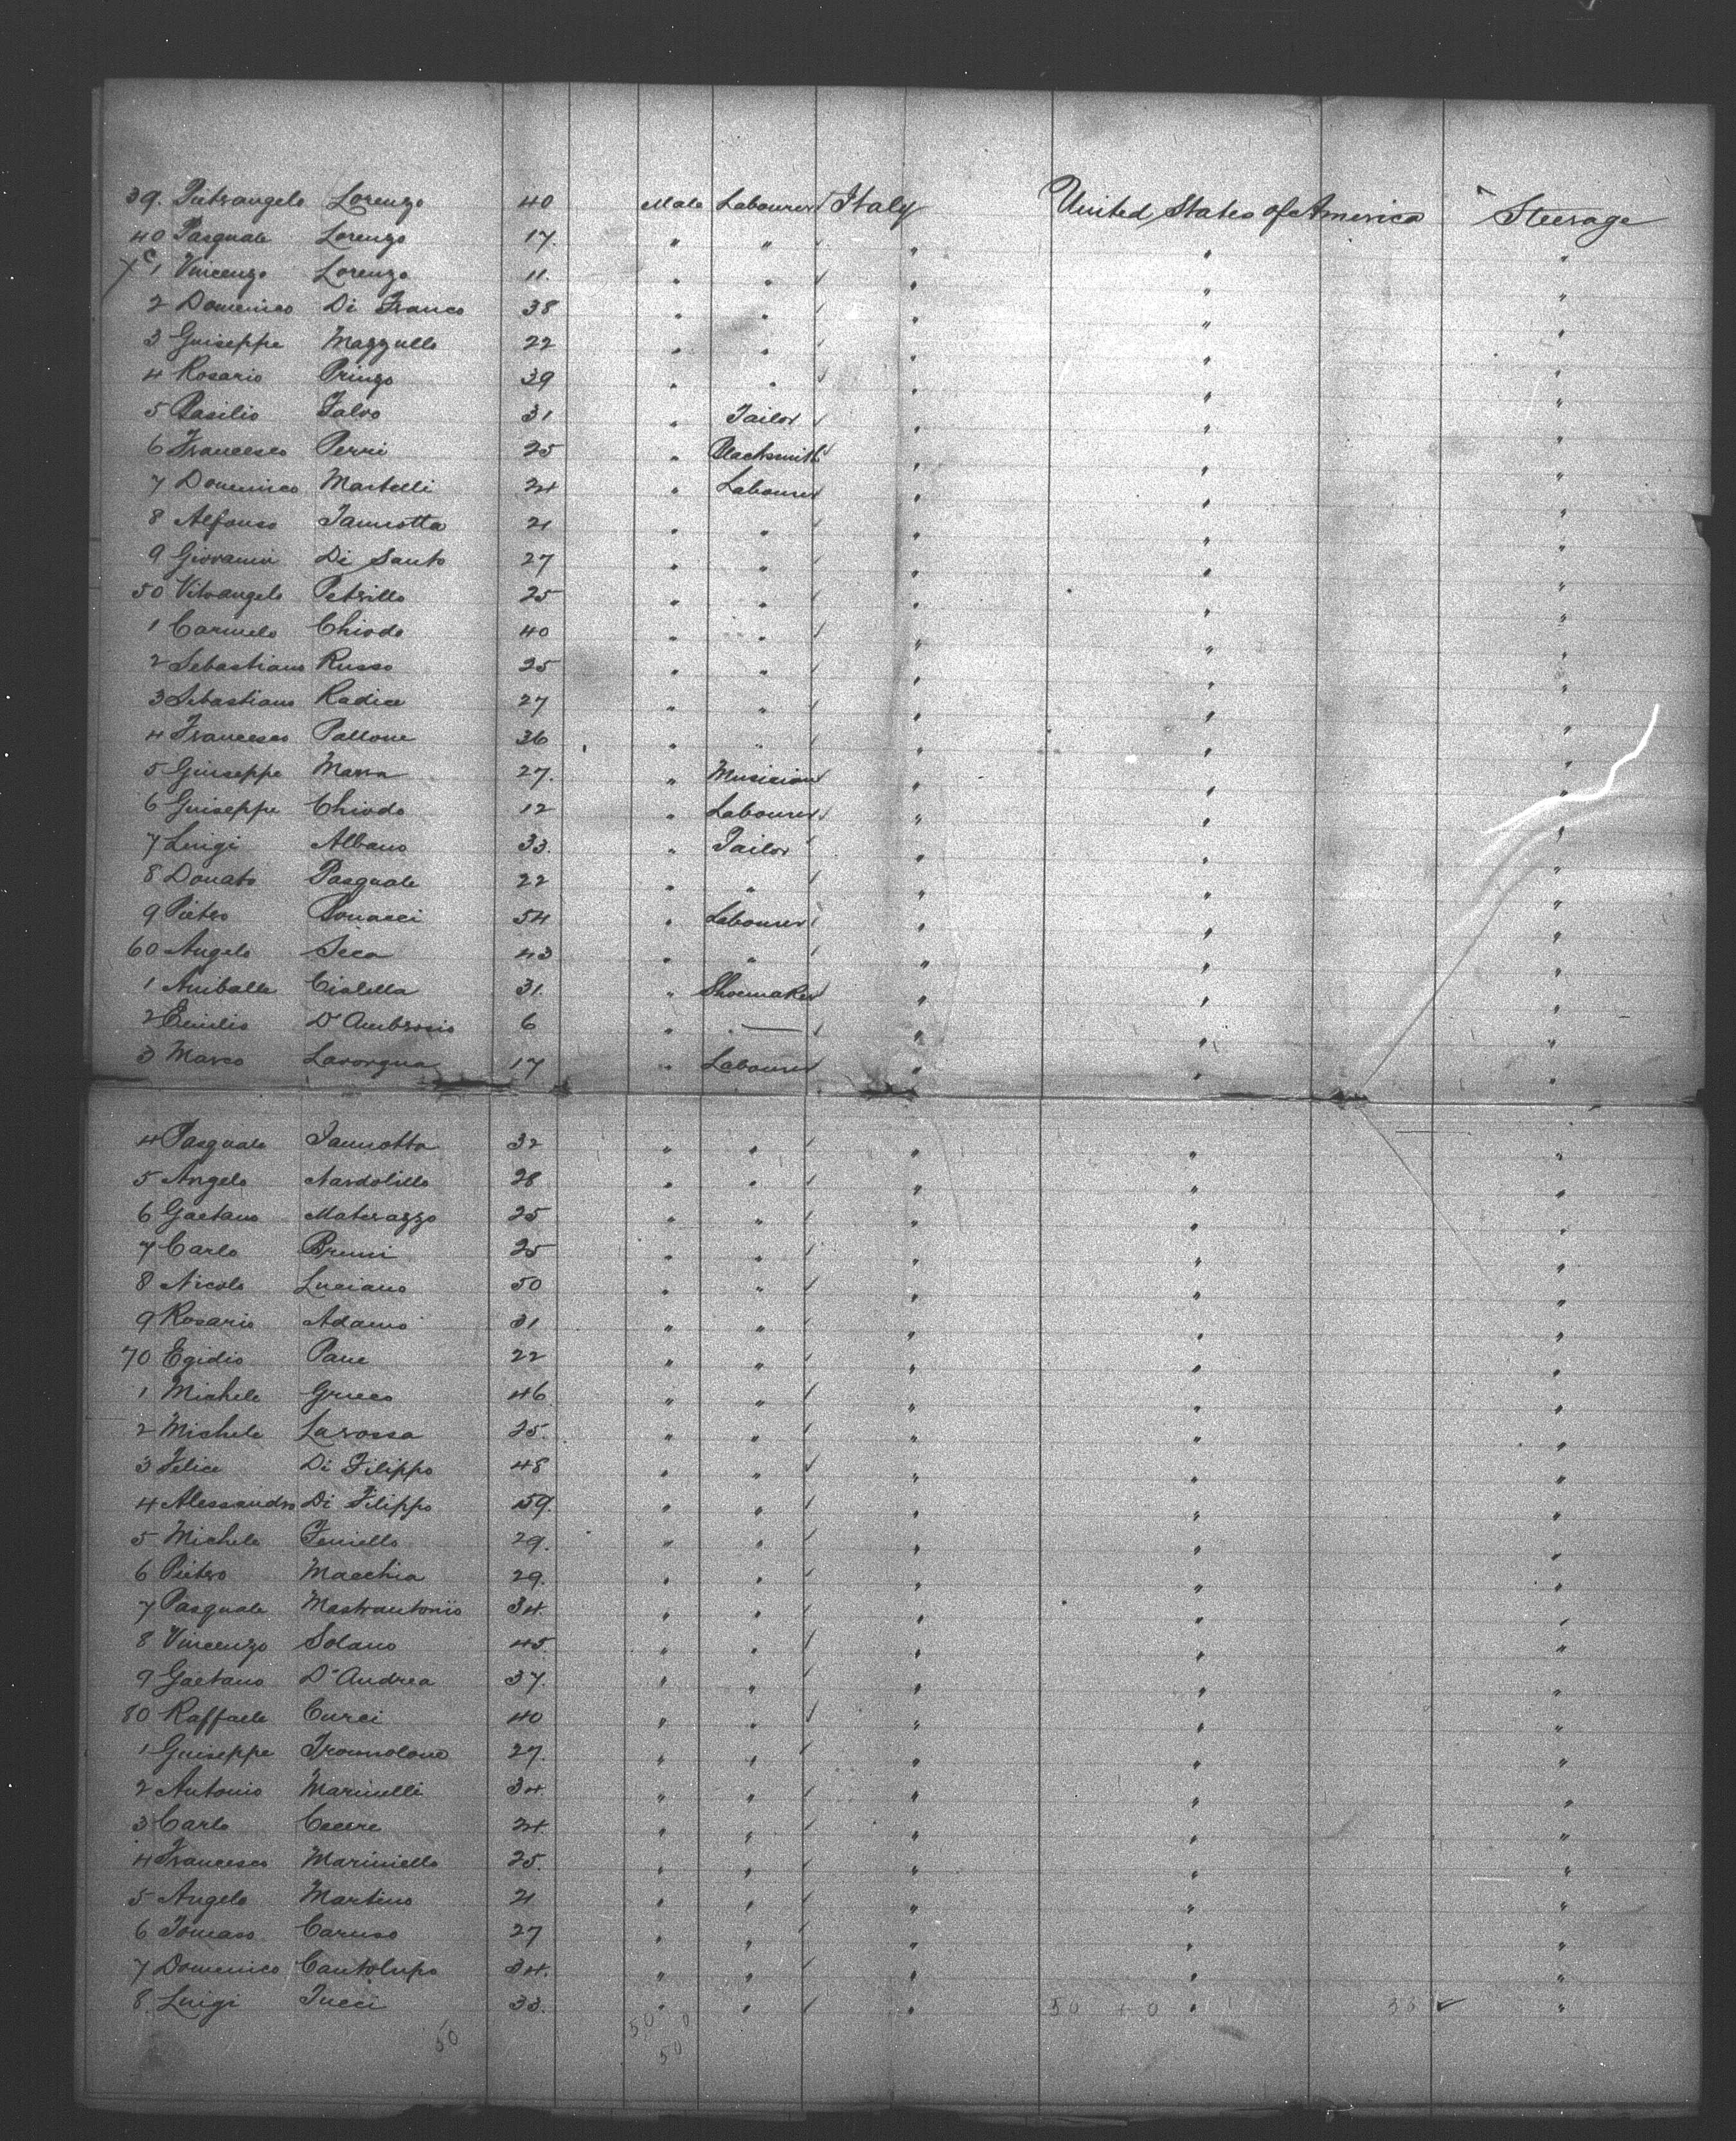 39. Pietrangelo Lorenzo 40 Male Labourer Italy United States of America Steerage
40 Pasquale Lorenzo 17. " " " " "
1 Vincenzo Lorenzo 11. " " " " "
2 Domenico Di Franco 38 " " " " "
3 Guiseppe Mazzullo 22 " " " " "
4 Rosario Pringo 39 " " " " "
5 Basilio Falvo 31 " Tailor " " "
6 Francesco Perri 25 " Blacksmith " " "
7 Domenico Martelli 24 " Labourer " " "
8 Alfonso Iannotta 21 " " " " "
9 Giovanni Di Santo 27 " " " " "
50 Vitoangelo Petrillo 25 " " " " "
1 Carmelo Chiodo 40 " " " " "
2 Sebastiano Russo 25 " " " " "
3 Sebastiano Radice 27 " " " " "
4 Francesco Pallone 36 " " " " "
5 Giuseppe Marra 27. " Musician " " "
6 Guiseppe Chiodo 12 " Labourer " " "
7 Luigi Albano 33. " Tailor " " "
8 Donato Pasquale 22 " " " " "
9 Pietro Bonacci 54 " Labourer " " "
60 Angelo Seca 43 " " " " "
1 Aniballe Cialella 31. " Shoemaker " " "
2 Emilio D'Ambrosio 6 " — " " "
3 Marco Lavorgna 17 " Labourer " " "
4 Pasquale Iannotta 32 " " " " "
5 Angelo Nardolillo 28 " " " " "
6 Gaetano Materazzo 25 " " " " "
7 Carlo Bruni 25 " " " " "
8 Nicola Luciano 50 " " " " "
9 Rosario Adamo 31 " " " " "
70 Egidio Pane 22 " " " " "
1 Michele Grieco 46 " " " " "
2 Michele Larossa 25. " " " " "
3 Felice Di Filippo 48 " " " " "
4 Alessandro Di Filippo 59. " " " " "
5 Michele 29. " " " " "
6 Pietro Macchia 29. " " " " "
7 Pasquale Mastrantonio 34. " " " " "
8 Vincenzo Solano 45 " " " " "
9 Gaetano D'Andrea 37. " " " " "
80 Raffaele Curci 40 " " " " "
1 Guiseppe 27. " " " " "
2 Antonio Marinelli 34. " " " " "
3 Carlo Cecere 24. " " " " "
4 Francesco Mariniello 25. " " " " "
5 Angelo Martino 21 " " " " "
6 Tomaso Caruso 27 " " " " "
7 Domenico Cantalupo 34. " " " " "
8 Luigi Tucci 33. " " " " "
50 50 0 50 0
50